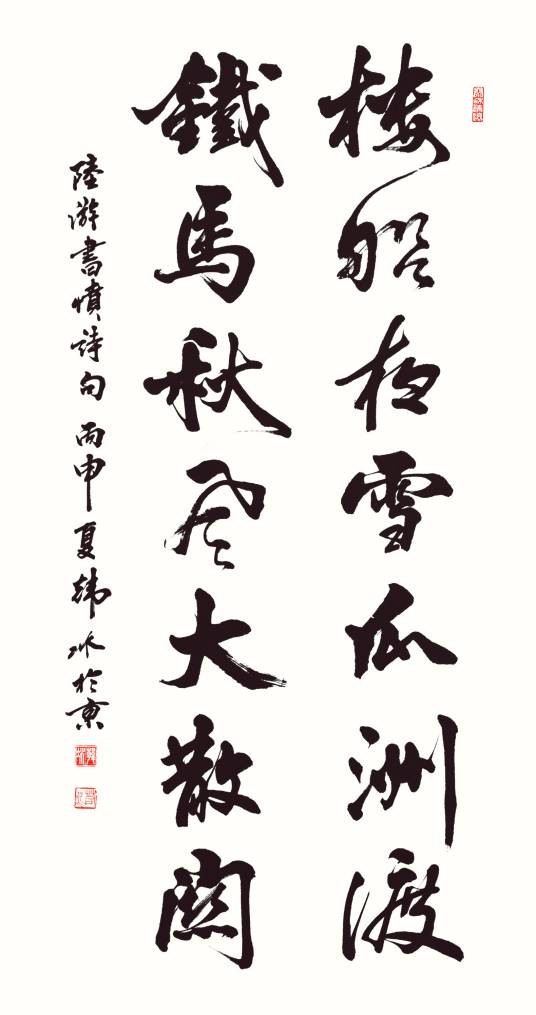 楼船夜雪瓜洲渡
鐵馬秋风大散關
陸游書憤詩句 丙申夏韩冰於京